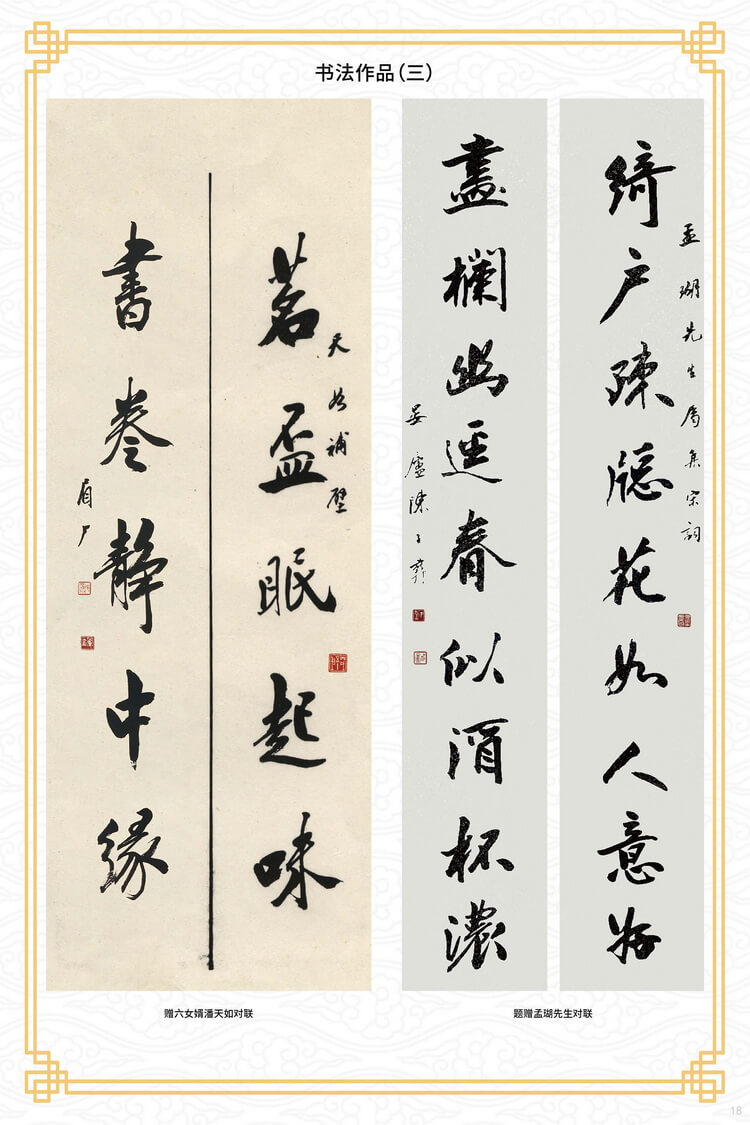 书法作品(三)
茗盃眠起味
天如補壁
書卷靜中緣
眉广
赠六女婿潘天如对联
綺户疎牕花如人意好
孟瑚先生屬集宋詞
畫欄幽逕春似酒杯濃
晏廬陳子彝
题赠孟瑚先生对联
18